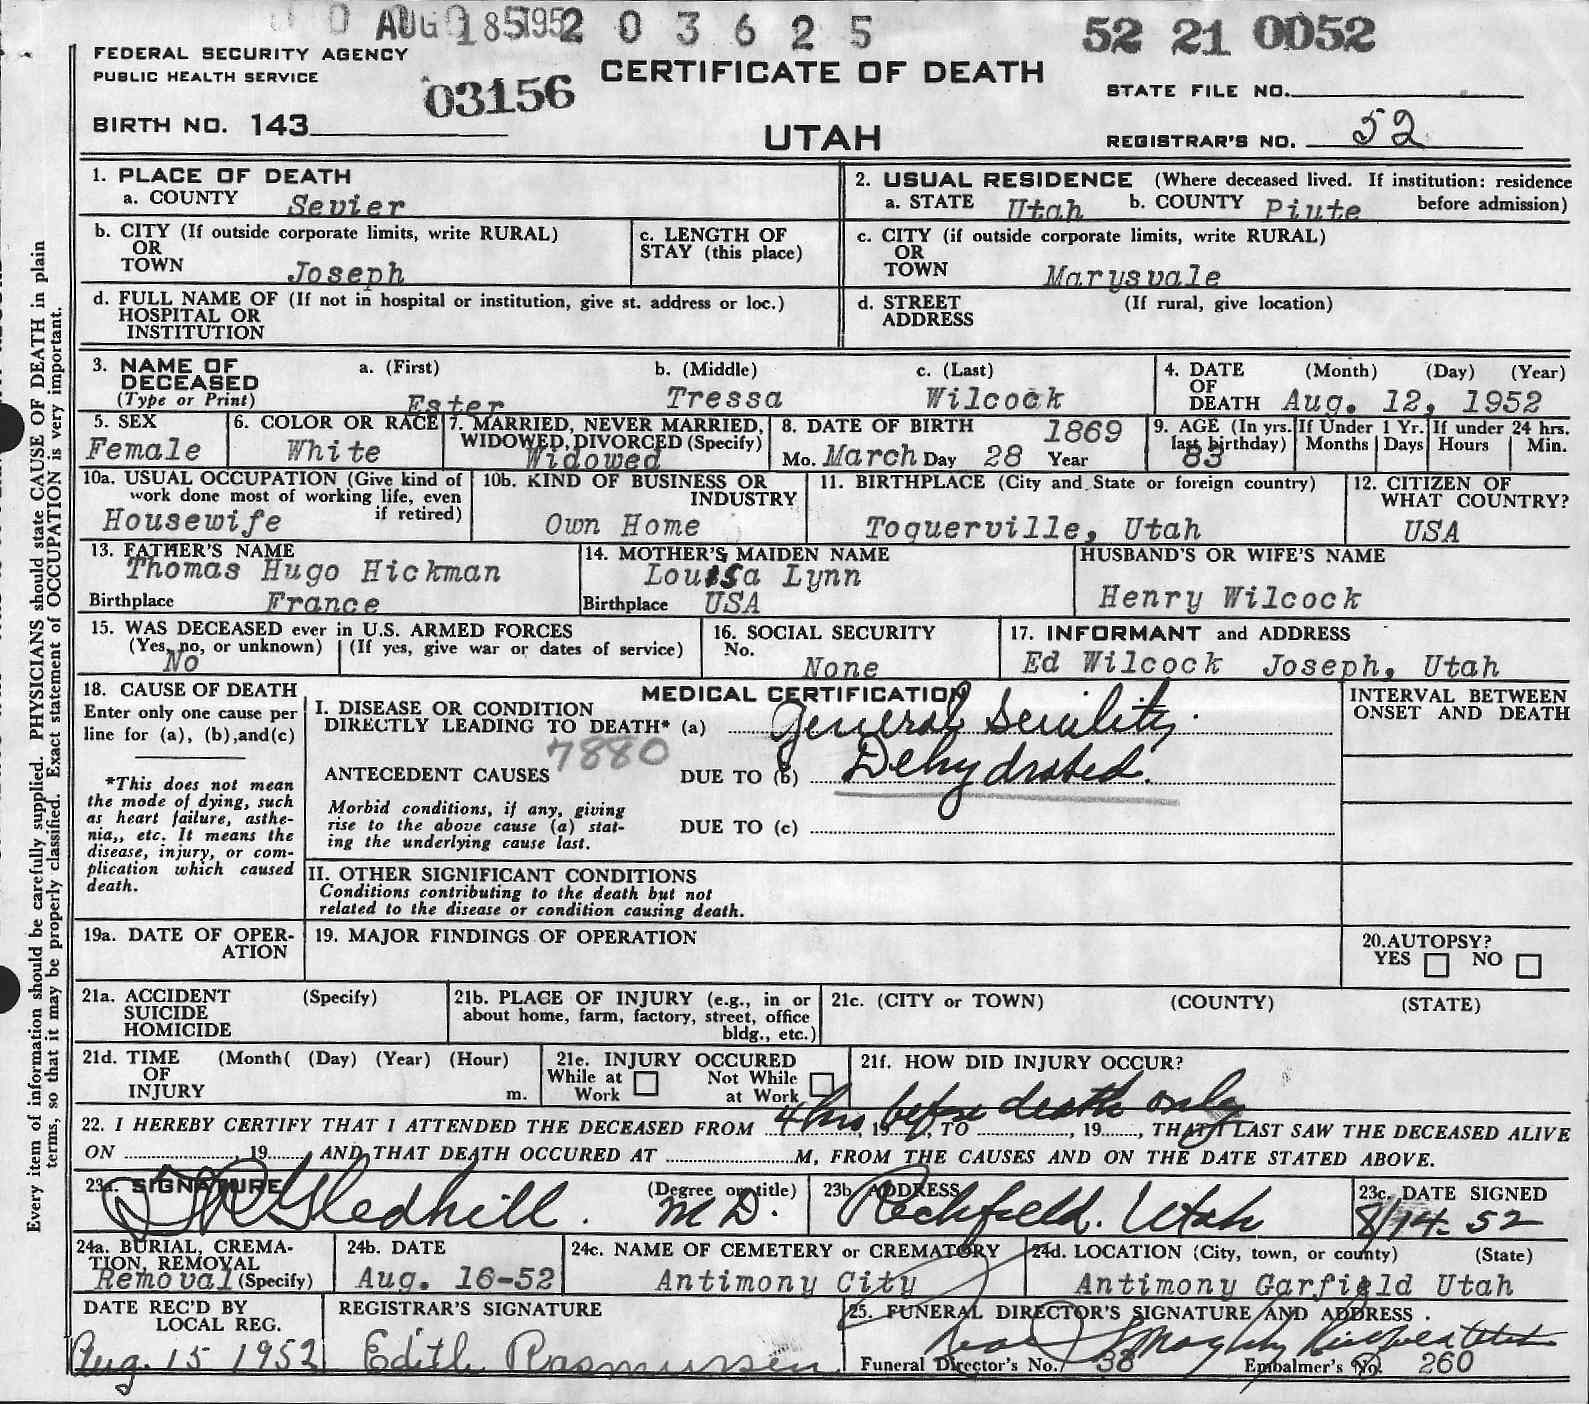 AUG 18 1952 0 3 6 2 5
52 21 0052
FEDERAL SECURITY AGENCY
PUBLIC HEALTH SERVICE
03156
BIRTH NO. 143
CERTIFICATE OF DEATH
UTAH
STATE FILE NO.
REGISTRAR'S NO. 52
Every item of information should be carefully supplied. PHYSICIANS should state CAUSE OF DEATH in plain
terms, so that it may be properly classified. Exact statement of OCCUPATION is very important.
1. PLACE OF DEATH
a. COUNTY Sevier
2. USUAL RESIDENCE (Where deceased lived. If institution: residence
a. STATE Utah b. COUNTY Piute before admission)
b. CITY (If outside corporate limits, write RURAL)
OR
TOWN Joseph
c. LENGTH OF
STAY (this place)
c. CITY (if outside corporate limits, write RURAL)
OR
TOWN Marysvale
d. FULL NAME OF (If not in hospital or institution, give st. address or loc.)
HOSPITAL OR
INSTITUTION
d. STREET (If rural, give location)
ADDRESS
3. NAME OF
DECEASED
(Type or Print)
a. (First) b. (Middle) c. (Last)
Ester Tressa Wilcock
4. DATE (Month) (Day) (Year)
OF
DEATH Aug. 12, 1952
5. SEX
Female
6. COLOR OR RACE
White
7. MARRIED, NEVER MARRIED,
WIDOWED, DIVORCED (Specify)
Widowed
8. DATE OF BIRTH 1869
Mo. March Day 28 Year
9. AGE (In yrs.
last birthday)
83
If Under 1 Yr.
Months Days
If under 24 hrs.
Hours Min.
10a. USUAL OCCUPATION (Give kind of
work done most of working life, even
if retired)
Housewife
10b. KIND OF BUSINESS OR
INDUSTRY
Own Home
11. BIRTHPLACE (City and State or foreign country)
Toquerville, Utah
12. CITIZEN OF
WHAT COUNTRY?
USA
13. FATHER'S NAME
Thomas Hugo Hickman
Birthplace France
14. MOTHER'S MAIDEN NAME
Louisa Lynn
Birthplace USA
HUSBAND'S OR WIFE'S NAME
Henry Wilcock
15. WAS DECEASED ever in U.S. ARMED FORCES
(Yes, no, or unknown) (If yes, give war or dates of service)
No
16. SOCIAL SECURITY
No.
None
17. INFORMANT and ADDRESS
Ed Wilcock Joseph, Utah
18. CAUSE OF DEATH
Enter only one cause per
line for (a), (b),and(c)
*This does not mean
the mode of dying, such
as heart failure, asthe-
nia,, etc. It means the
disease, injury, or com-
plication which caused
death.
MEDICAL CERTIFICATION
I. DISEASE OR CONDITION
DIRECTLY LEADING TO DEATH* (a) General Senility.
7880
ANTECEDENT CAUSES DUE TO (b) Dehydrated.
Morbid conditions, if any, giving
rise to the above cause (a) stat-
ing the underlying cause last.
DUE TO (c)
INTERVAL BETWEEN
ONSET AND DEATH
II. OTHER SIGNIFICANT CONDITIONS
Conditions contributing to the death but not
related to the disease or condition causing death.
19a. DATE OF OPER-
ATION
19. MAJOR FINDINGS OF OPERATION
20.AUTOPSY?
YES NO
21a. ACCIDENT (Specify)
SUICIDE
HOMICIDE
21b. PLACE OF INJURY (e.g., in or
about home, farm, factory, street, office
bldg., etc.)
21c. (CITY or TOWN) (COUNTY) (STATE)
21d. TIME (Month( (Day) (Year) (Hour)
OF
INJURY m.
21e. INJURY OCCURED
While at Not While
Work at Work
21f. HOW DID INJURY OCCUR?
4 hrs before death only
22. I HEREBY CERTIFY THAT I ATTENDED THE DECEASED FROM , 19 , TO , 19 , THAT I LAST SAW THE DECEASED ALIVE
ON , 19 AND THAT DEATH OCCURED AT M, FROM THE CAUSES AND ON THE DATE STATED ABOVE.
23a. SIGNATURE (Degree or title)
Gledhill. M D.
23b. ADDRESS
Richfield. Utah
23c. DATE SIGNED
8/14-52
24a. BURIAL, CREMA-
TION, REMOVAL
Removal (Specify)
24b. DATE
Aug. 16-52
24c. NAME OF CEMETERY or CREMATORY
Antimony City
24d. LOCATION (City, town, or county) (State)
Antimony Garfield Utah
DATE REC'D BY
LOCAL REG.
Aug. 15 1952
REGISTRAR'S SIGNATURE
Edith Rasmussen
25. FUNERAL DIRECTOR'S SIGNATURE AND ADDRESS
Funeral Director's No. 38 Embalmer's No. 260